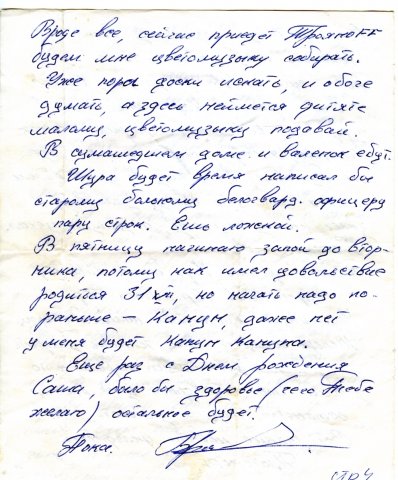 Вроде все, сейчас приедет ТрояноFF
будем мне цветомузыку собирать.
Уже пора доски искать, и о боге
думать, а здесь неймется дитяте
малому, цветомузыку подавай.
В сумашедшем доме и валенок ебут.
Шура будет время написал бы
старому больному белогвард. офицеру
пару строк. Ешь ложкой.
В пятницу начинаю запой до втор-
ника, потому как имел удовольствие
родится 31го, но начать надо по-
раньше - канун, даже нет
у меня будет Канун Кануна.
Еще раз с Днем рождения
Саша, было бы здоровье (чего Тебе
желаю) остальное будет.
Пока.
стр 4